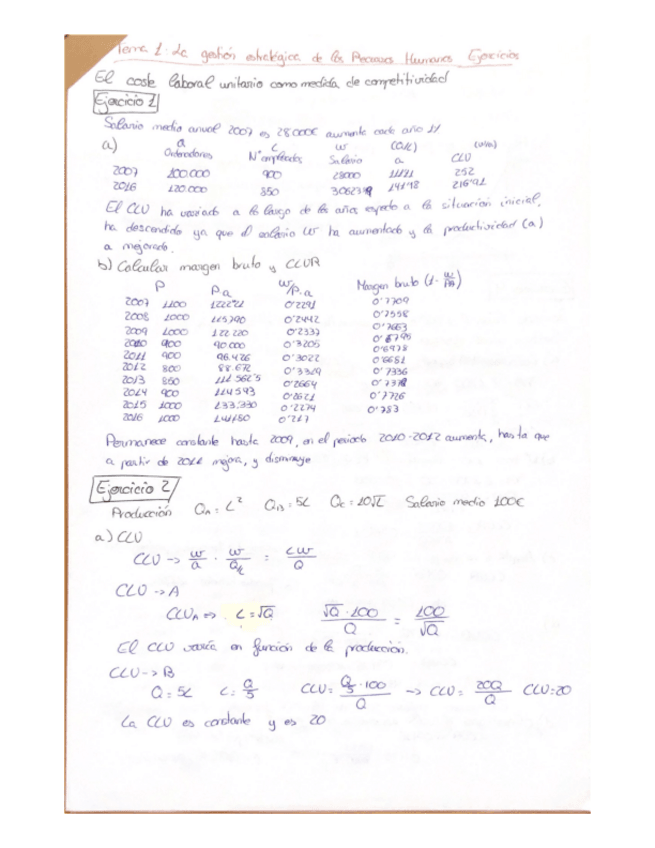 Tema 1: La gestión estratégica de los Recursos Humanos Ejercicios
El coste laboral unitario como medida de competitividad
Ejercicio 1
Salario medio anual 2007 es 28000€ aumenta cada año 1%
a) Q Ordenadores L Nº empleados w Salario (Q/L) a (w/a) CLU
2007 100.000 900 28000 111'11 252
2016 120.000 850 141'18 216'91
El CLU ha variado a lo largo de los años respecto a la situación inicial,
ha descendido ya que el salario w ha aumentado y la productividad (a)
a mejorado.
b) Calcular margen bruto y CLUR
P P.a w/P.a Margen bruto (1 - w/Pa)
2007 1100 0'2291 0'7709
2008 1000 115790 0'2442 0'7558
2009 1000 122.220 0'2337 0'7663
2010 900 90.000 0'3205 0'6795
2011 900 96.426 0'3022 0'6978
2012 800 88.672 0'3329 0'6651
2013 850 111.562'5 0'2664 0'7336
2014 900 114593 0'2621 0'7378
2015 1000 133.330 0'2274 0'7726
2016 1000 141180 0'217 0'783
Permanece constante hasta 2009, en el periodo 2010-2012 aumenta, hasta que
a partir de mejora, y disminuye
Ejercicio 2
Producción QA = L² QB = 5L Qc = 10√L Salario medio 100€
a) CLU
CLU -> w/a · w/Q/L = Lw/Q
CLU -> A
CLUA => L = √Q √Q · 100 / Q = 100/√Q
El CLU varía en función de la producción.
CLU -> B
Q = 5L L = Q/5 CLU = Q/5 · 100 / Q -> CLU = 20Q/Q CLU = 20
La CLU es constante y es 20